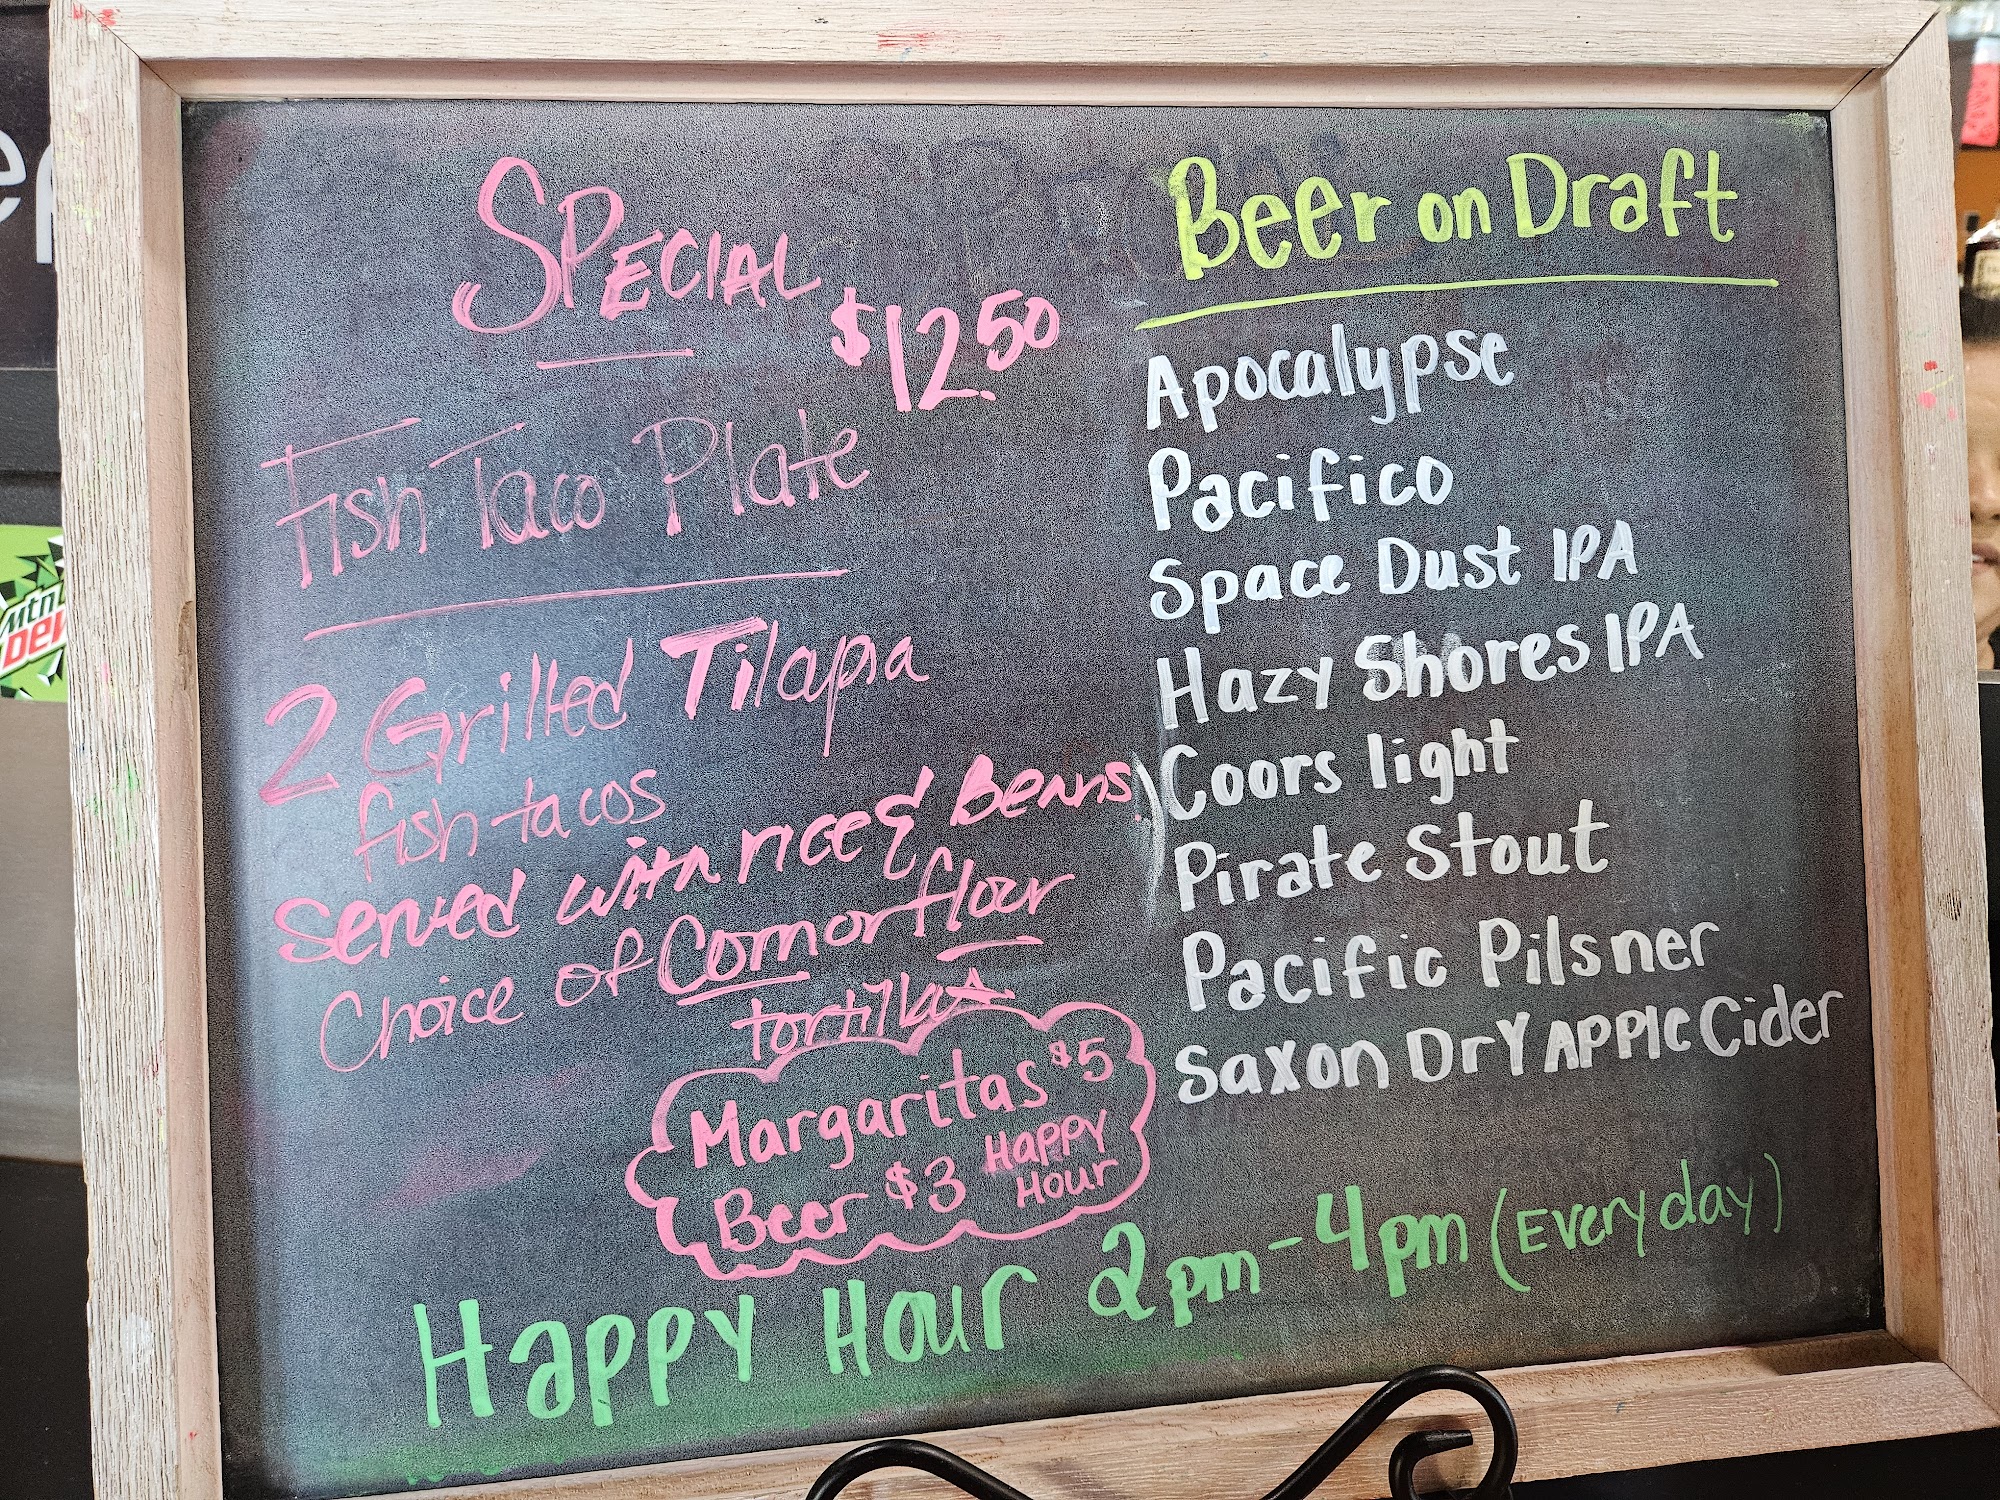 Special
$12.50
Fish Taco Plate
2 Grilled Tilapia
fish tacos
served with rice & Beans
Choice of Corn or flour
tortillas
Margaritas $5
Beer $3 Happy
Hour
Beer on Draft
Apocalypse
Pacifico
Space Dust IPA
Hazy Shores IPA
Coors light
Pirate Stout
Pacific Pilsner
Saxon Dry Apple Cider
Happy Hour 2pm-4pm (Everyday)
mtn
DEW